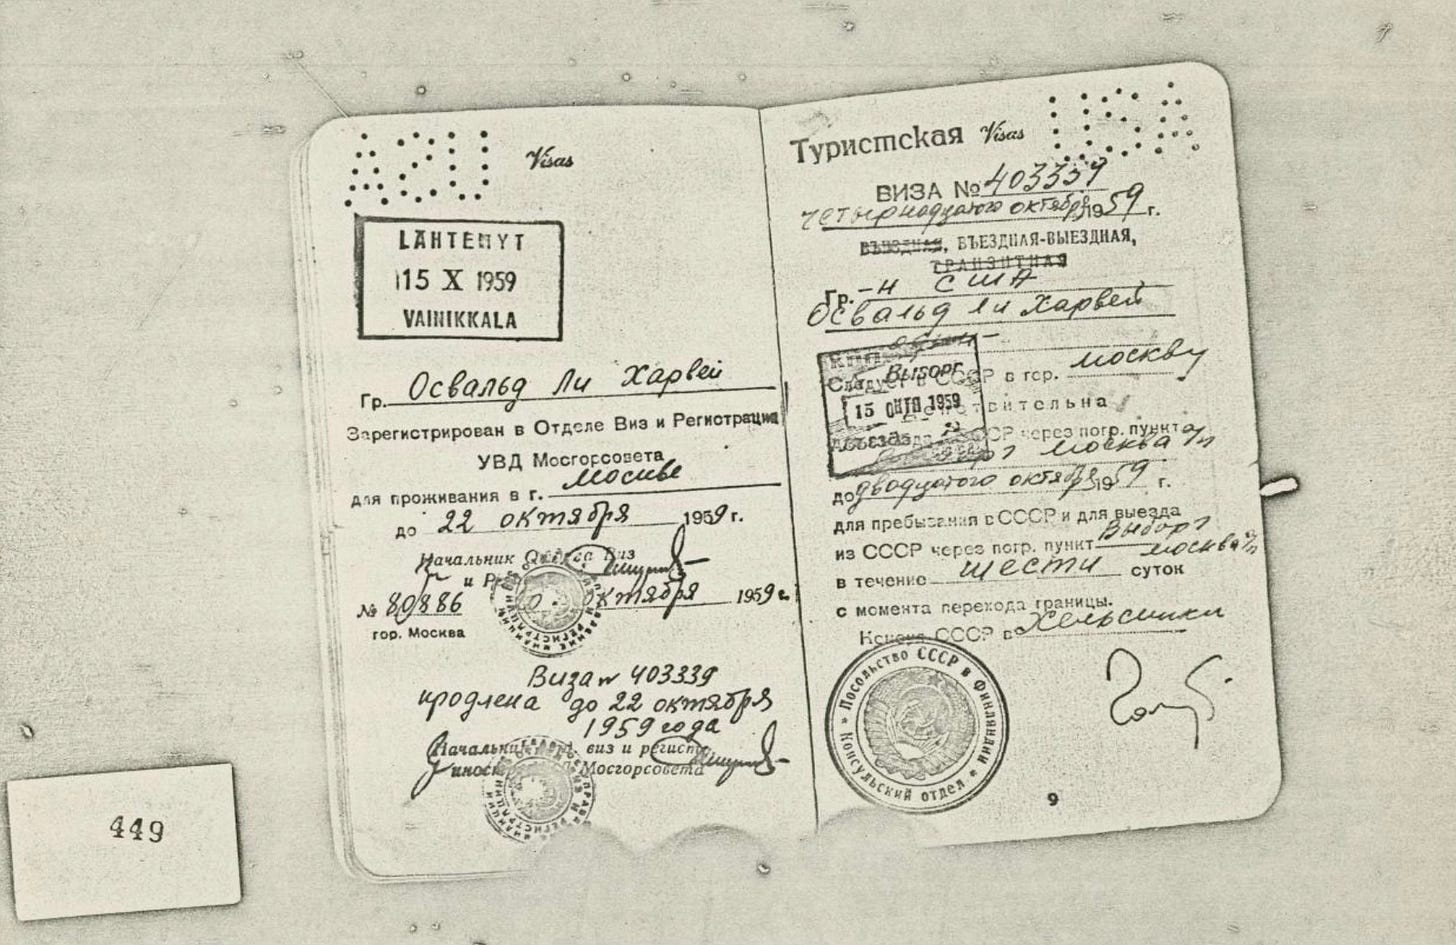 Visas
LÄHTENYT
15 X 1959
VAINIKKALA
Гр. Освальд Ли Харвей
Зарегистрирован в Отделе Виз и Регистрации
УВД Мосгорсовета
для проживания в г. Москве
до 22 октября 1959 г.
Начальник Отдела Виз
и
№ 80886 октября 1959 г.
гор. Москва
Виза № 403339
продлена до 22 октября
1959 года
Начальник виз и регистр
иност Мосгорсовета
Туристская Visas
USA
ВИЗА № 403339
четырнадцатого октября 1959 г.
ВЪЕЗДНАЯ, ВЪЕЗДНАЯ-ВЫЕЗДНАЯ,
ТРАНЗИТНАЯ
Гр. -н США
Освальд Ли Харвей
КПП
Выборг
Следует в СССР в гор. Москву
15 ОКТ 1959
Действительна
для въезда в СССР через погр. пункт
Москва а/п
до двадцатого октября 1959 г.
для пребывания в СССР и для выезда
из СССР через погр. пункт Выборг
Москва а/п
в течение шести суток
с момента перехода границы.
Консул СССР в Хельсинки
Посольство СССР в Финляндии
Консульский отдел
9
449